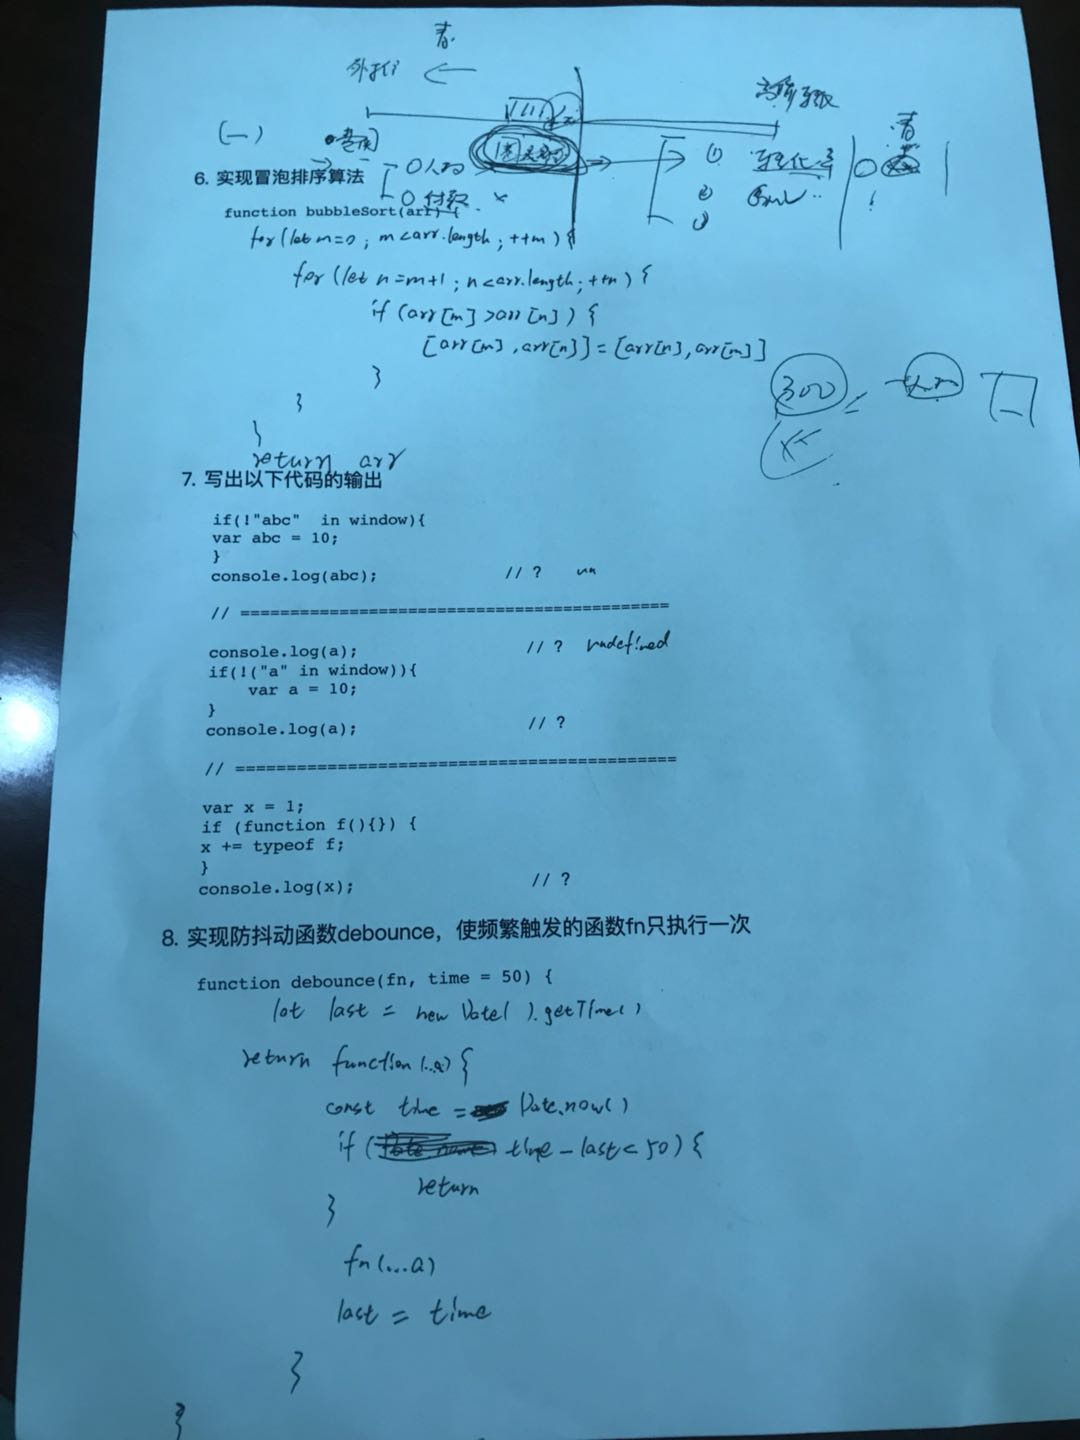 (一)
6. 实现冒泡排序算法
function bubbleSort(arr) {
for(let m=0; m<arr.length; ++m){
for(let n=m+1; n<arr.length; ++n){
if(arr[m]>arr[n]){
[arr[m],arr[n]]=[arr[n],arr[m]]
}
}
}
return arr
300
7. 写出以下代码的输出
if(!"abc" in window){
var abc = 10;
}
console.log(abc); // ? un
// ==========================================
console.log(a); // ? undefined
if(!("a" in window)){
var a = 10;
}
console.log(a); // ?
// ===========================================
var x = 1;
if (function f(){}) {
x += typeof f;
}
console.log(x); // ?
8. 实现防抖动函数debounce，使频繁触发的函数fn只执行一次
function debounce(fn, time = 50) {
let last = new Date().getTime()
return function(...a){
const time = Date.now()
if( time-last<50){
return
}
fn(...a)
last = time
}
}